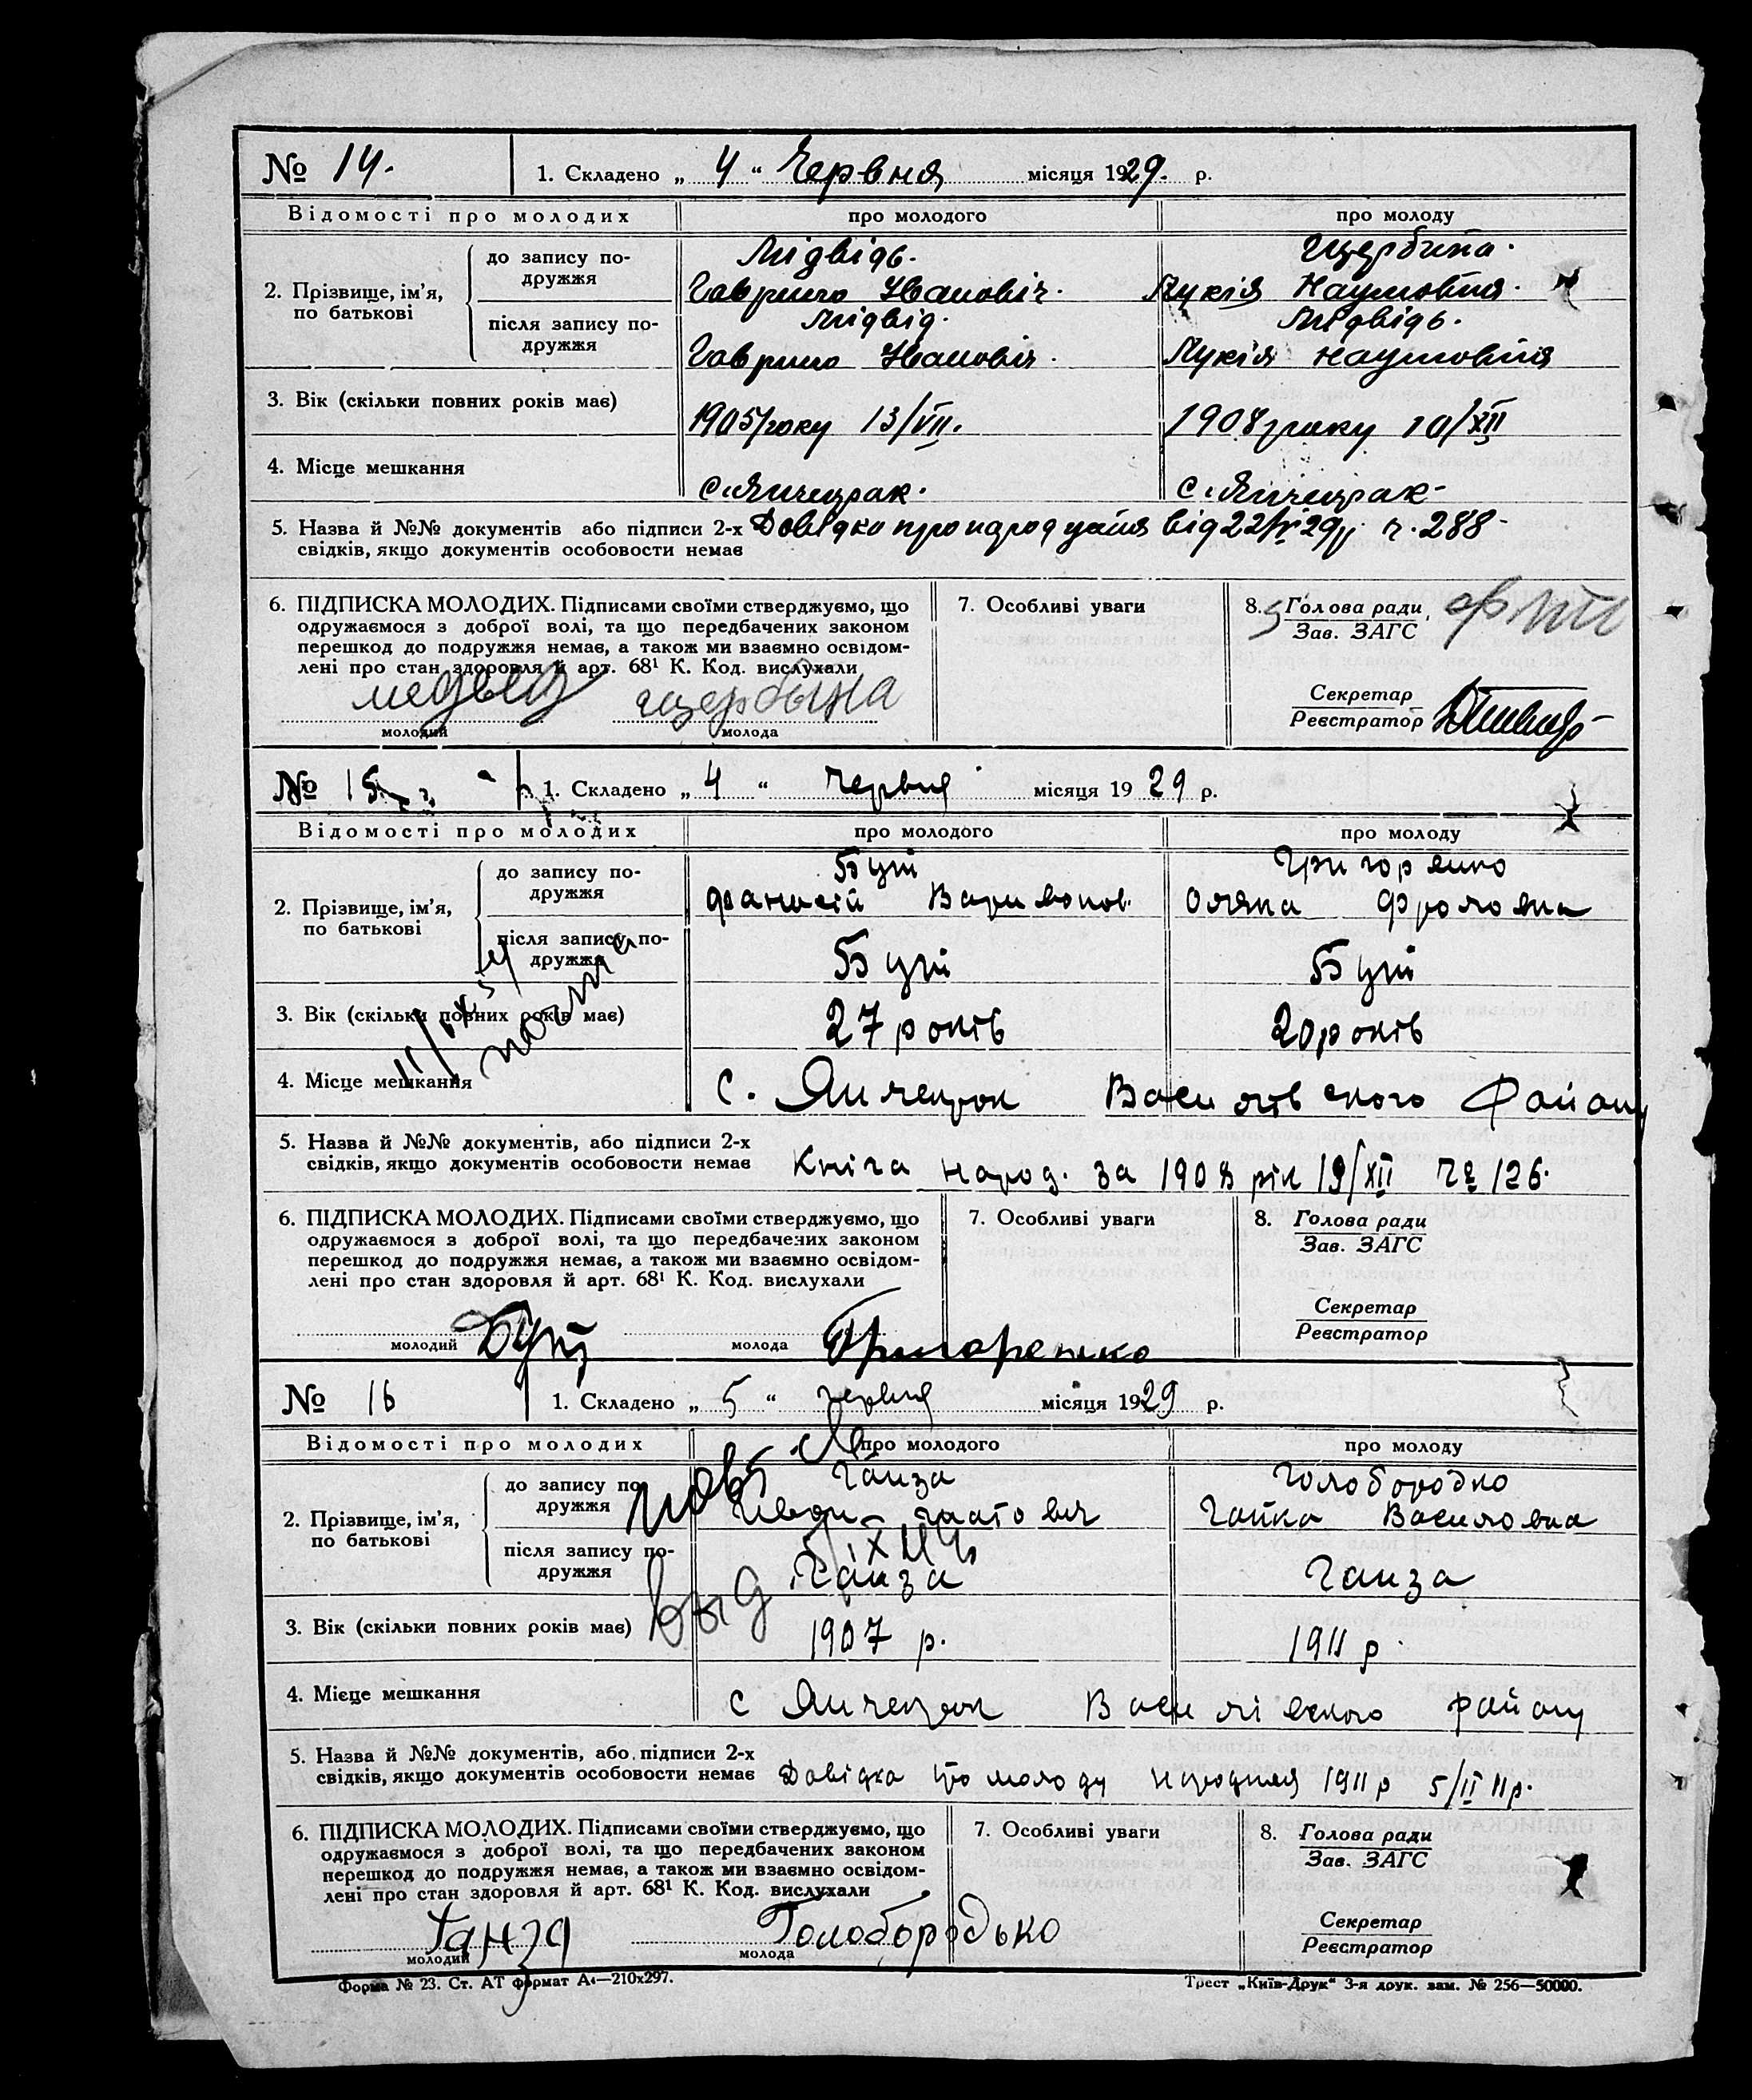 № 14. 1. Складено „ 4 “ Червня місяця 1929. р.
Відомості про молодих про молодого про молоду
2. Прізвище, ім’я, по батькові
до запису подружжя
Мідвідь. Щербина.
Гаврило Іванович. Лукія Наумовна.
після запису подружжя
Мідвід. Мідвідь.
Гаврило Іванович. Лукія Наумовна
3. Вік (скільки повних років має) 1905 року 13/VII. 1908 року 10/XII
4. Місце мешкання с. Янчекрак. с. Янчекрак-
5. Назва й №№ документів або підписи 2-х Довідка про від 22/ 29р ч. 288-
свідків, якщо документів особовости немає
6. ПІДПИСКА МОЛОДИХ. Підписами своїми стверджуємо, що 7. Особливі уваги 8. Голова ради
одружаємося з доброї волі, та що передбачених законом Зав. ЗАГС
перешкод до подружжя немає, а також ми взаємно освідом-
лені про стан здоровля й арт. 68¹ К. Код. вислухали
щербына Секретар
молодий молода Реєстратор
№ 15 1. Складено „ 4 “ червня місяця 1929 р.
Відомості про молодих про молодого про молоду
2. Прізвище, ім’я, по батькові
до запису подружжя
Буті Григоренко
Фроловна
після запису подружжя
Буті Буті
3. Вік (скільки повних років має) 27 років 20 років
4. Місце мешкання с. Янчекрак Василівського Району
5. Назва й №№ документів, або підписи 2-х
свідків, якщо документів особовости немає Кніга народ. за 1908 рік 19/XII № 126.
6. ПІДПИСКА МОЛОДИХ. Підписами своїми стверджуємо, що 7. Особливі уваги 8. Голова ради
одружаємося з доброї волі, та що передбачених законом Зав. ЗАГС
перешкод до подружжя немає, а також ми взаємно освідом-
лені про стан здоровля й арт. 68¹ К. Код. вислухали
Секретар
молодий Буті молода Григоренко Реєстратор
№ 16 1. Складено „ 5 “ червня місяця 1929 р.
Відомості про молодих про молодого про молоду
2. Прізвище, ім’я, по батькові
до запису подружжя
Ганза Голобородко
Ганка Василовна
після запису подружжя
Ганза Ганза
3. Вік (скільки повних років має) 1907 р. 1911 р.
4. Мієце мешкання с Янчекрак району
5. Назва й №№ документів, або підписи 2-х
свідків, якщо документів особовости немає Довідка молоду 1911 р 5/II 11р.
6. ПІДПИСКА МОЛОДИХ. Підписами своїми стверджуємо, що 7. Особливі уваги 8. Голова ради
одружаємося з доброї волі, та що передбачених законом Зав. ЗАГС
перешкод до подружжя немає, а також ми взаємно освідом-
лені про стан здоровля й арт. 68¹ К. Код. вислухали
Ганза Голобородько Секретар
молодий молода Реєстратор
Форма № 23. Ст. АТ формат А4—210х297. Трест „Київ-Друк“ 3-я друк. зам. № 256—50000.